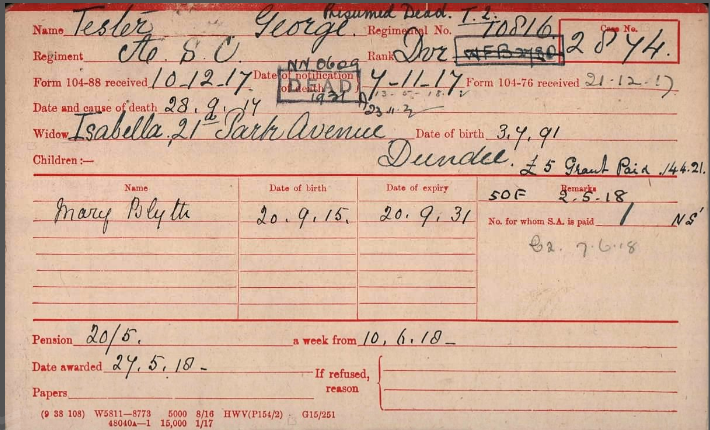 Presumed Dead. T.2.
Name Tester George. Regimental No. 10816. Case No. 2874.
Regiment A. S. C. Rank Dvr
NN 0609
Form 104-88 received 10-12-17 Date of notification of death 7-11-17 Form 104-76 received 21-12-17
DEAD
Date and cause of death 28.9.17
Widow Isabella, 21 Park Avenue Date of birth 3.7.91
Children:— Dundee. £5 Grant Paid 14.4.21.
Name Date of birth Date of expiry Remarks
SOE 2-5-18
Mary Blyth 20.9.15. 20.9.31
No. for whom S.A. is paid 1 NS
7-6-18
Pension 20/5. a week from 10.6.18-
Date awarded 27.5.18-
If refused, reason
Papers
(9 38 108) W5811—8773 5000 8/16 HWV(P154/2) G15/251
48040a—1 15,000 1/17